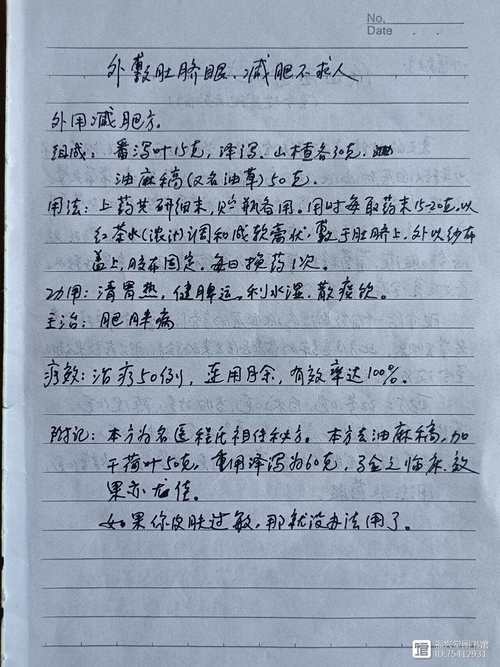 No.
Date
外敷肚脐眼、减胆不求人
外用减胆方。
组成：番泻叶15克，泽泻、山楂各30克.
油麻稿(又名油草)50克.
用法：上药共研细末，贮瓶备用。用时每取药末15-20克，以
红茶水(浓汁)调和成软膏状.敷于肚脐上，外以纱布
盖上，胶布固定，每日换药1次。
功用：清胃热，健脾运，利水湿.散痰饮。
主治：肥胖病
疗效：治疗50例，连用月余，有效率达100%。
附记：本方为名医程氏祖传秘方。本方去油麻稿，加
干荷叶50克，重用泽泻为60克，临床效
果亦尤佳。
如果你皮肤过敏，那就没办法用了。
ID:75412931